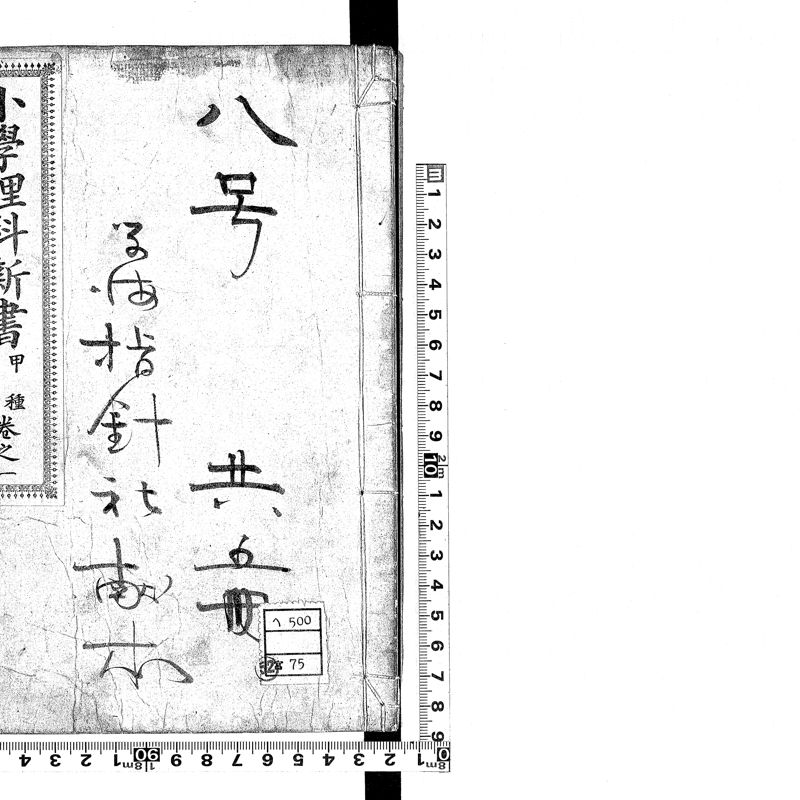 八号 共五冊
海指針社献本
小學理科新書 甲種 卷之一
ヘ 500
75
m 1 2 3 4 5 6 7 8 9 10 2m 1 2 3 4 5 6 7 8 9
4 3 2 1 1.8m 90 9 8 7 6 5 4 3 2 1 0